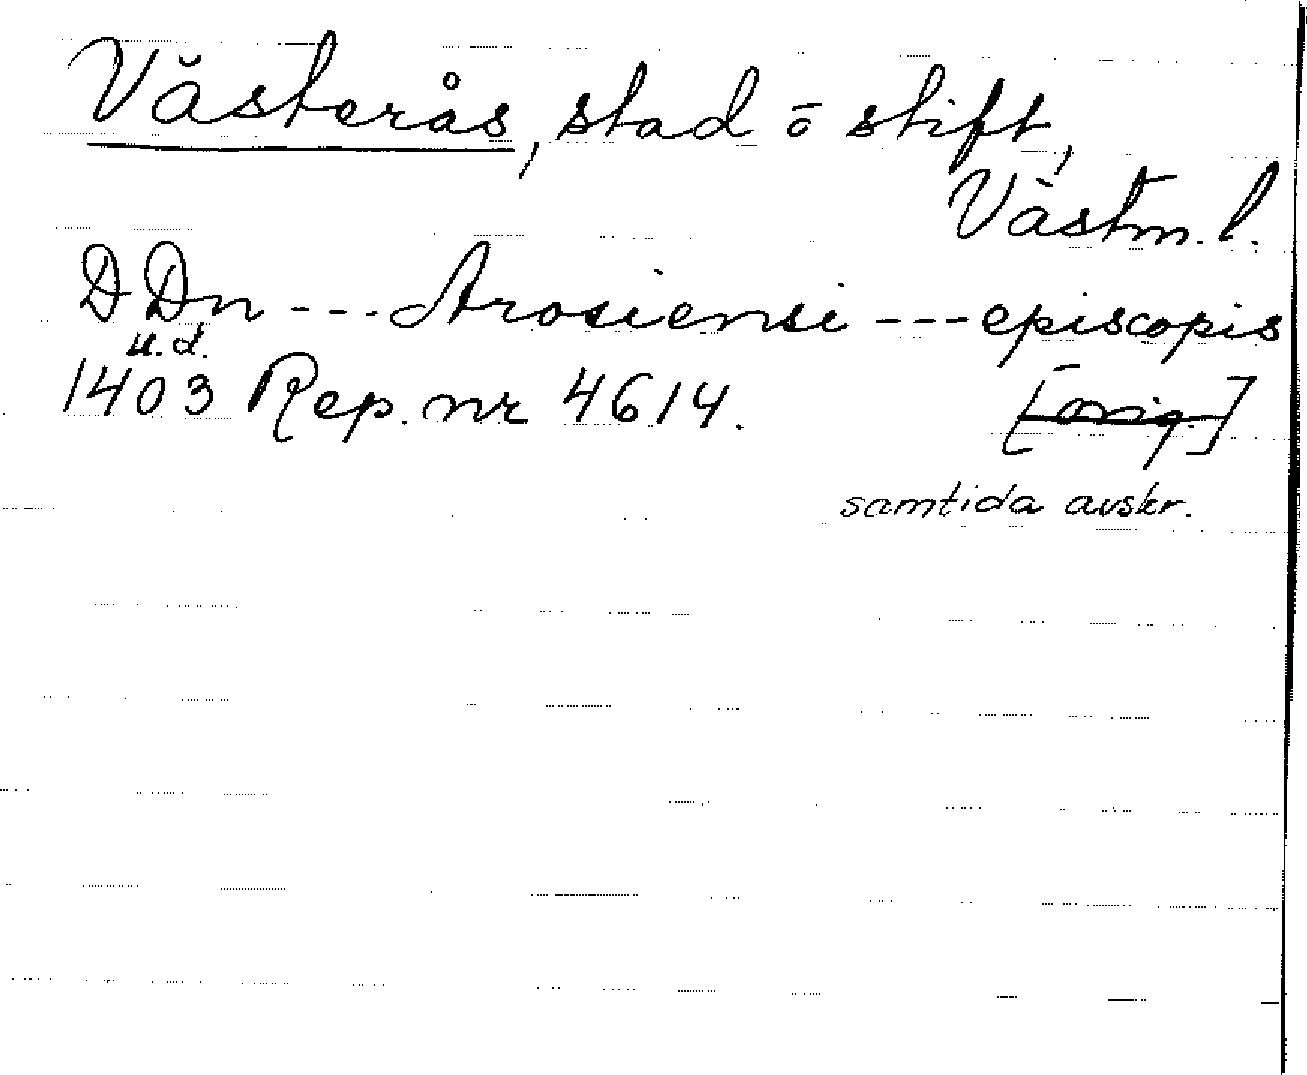 Västerås, stad o stift,
Västm. l.
D Dn --- Arosiensi --- episcopis
u.d.
1403 Rep. nr 4614. [orig.]
samtida avskr.